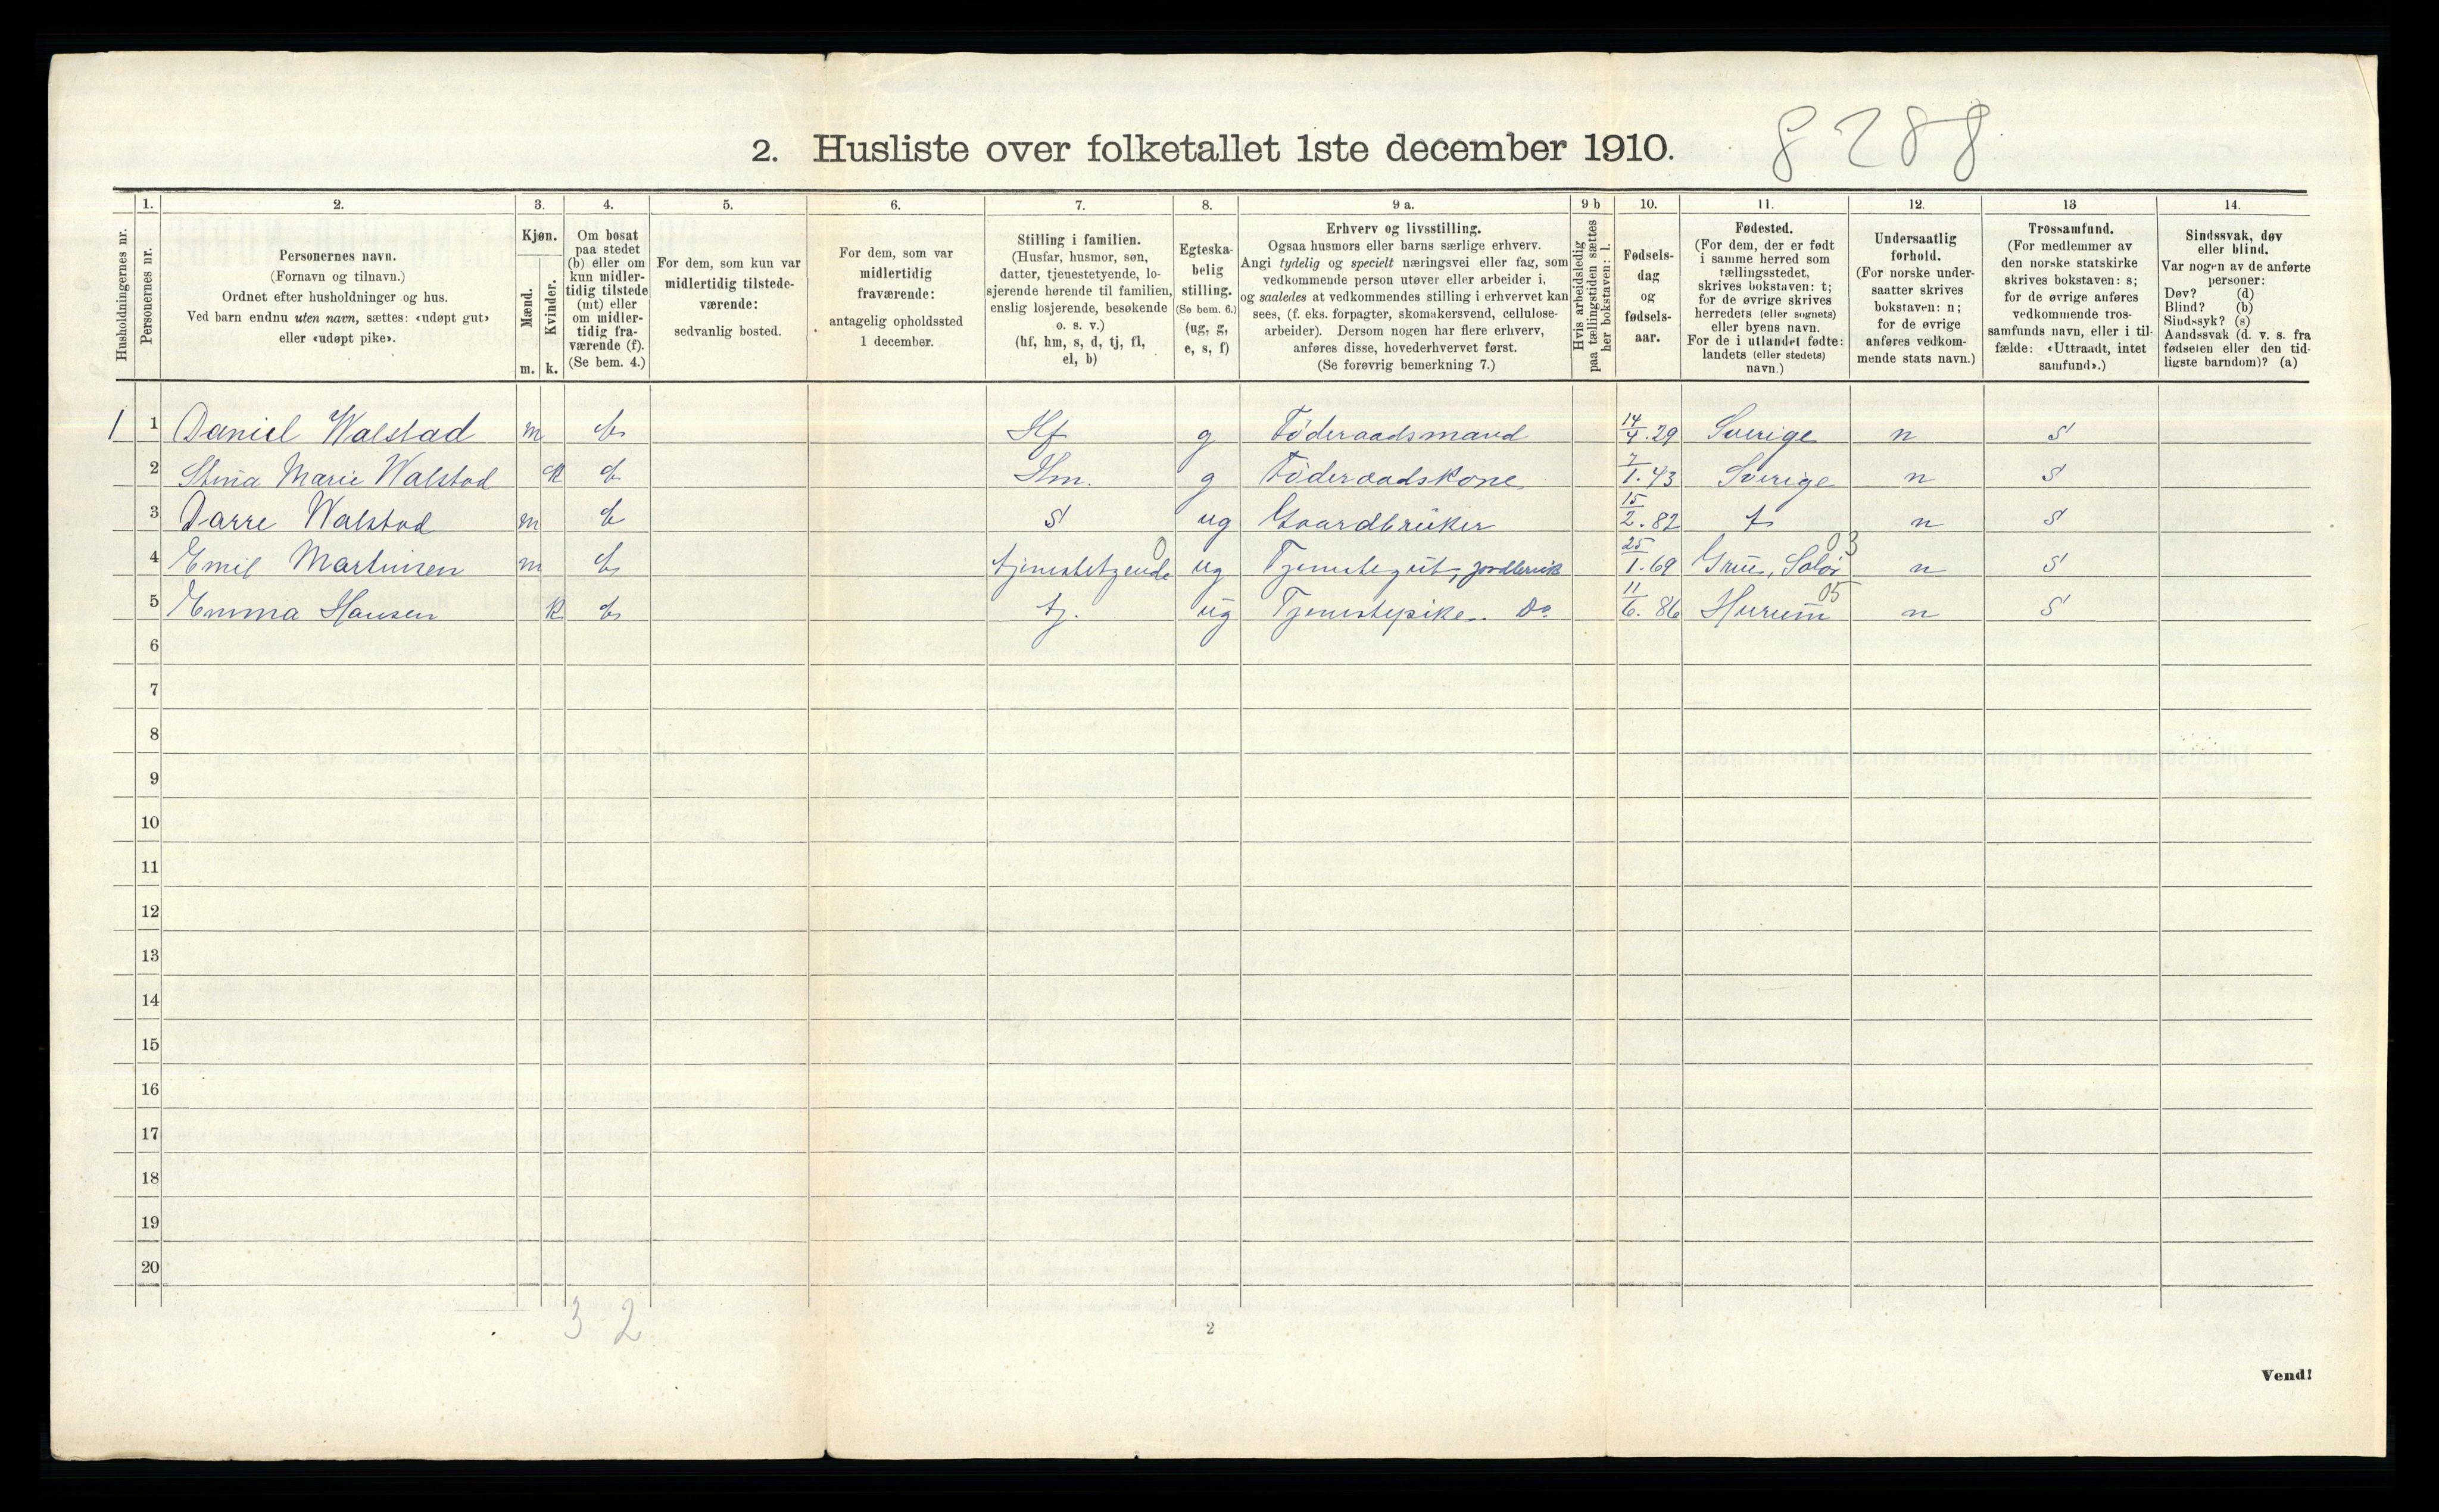 2. Husliste over folketallet 1ste december 1910. 8288
1. 2. 3. 4. 5. 6. 7. 8. 9 a. 9 b 10. 11. 12. 13 14.
Husholdningernes nr.
Personernes nr.
Personernes navn.
(Fornavn og tilnavn.)
Ordnet efter husholdninger og hus.
Ved barn endnu uten navn, sættes: «udøpt gut»
eller «udøpt pike».
Kjøn.
Mænd.
Kvinder.
m. k.
Om bosat
paa stedet
(b) eller om
kun midler-
tidig tilstede
(mt) eller
om midler-
tidig fra-
værende (f).
(Se bem. 4.)
For dem, som kun var
midlertidig tilstede-
værende:
sedvanlig bosted.
For dem, som var
midlertidig
fraværende:
antagelig opholdssted
1 december.
Stilling i familien.
(Husfar, husmor, søn,
datter, tjenestetyende, lo-
sjerende hørende til familien,
enslig losjerende, besøkende
o. s. v.)
(hf, hm, s, d, tj, fl,
el, b)
Egteska-
belig
stilling.
(Se bem. 6.)
(ug, g,
e, s, f)
Erhverv og livsstilling.
Ogsaa husmors eller barns særlige erhverv.
Angi tydelig og specielt næringsvei eller fag, som
vedkommende person utøver eller arbeider i,
og saaledes at vedkommendes stilling i erhvervet kan
sees, (f. eks. forpagter, skomakersvend, cellulose-
arbeider). Dersom nogen har flere erhverv,
anføres disse, hovederhvervet først.
(Se forøvrig bemerkning 7.)
Hvis arbeidsledig
paa tællingstiden sættes
her bokstaven: l.
Fødsels-
dag
og
fødsels-
aar.
Fødested.
(For dem, der er født
i samme herred som
tællingsstedet,
skrives bokstaven: t;
for de øvrige skrives
herredets (eller sognets)
eller byens navn.
For de i utlandet fødte:
landets (eller stedets)
navn.)
Undersaatlig
forhold.
(For norske under-
saatter skrives
bokstaven: n;
for de øvrige
anføres vedkom-
mende stats navn.)
Trossamfund.
(For medlemmer av
den norske statskirke
skrives bokstaven: s;
for de øvrige anføres
vedkommende tros-
samfunds navn, eller i til-
fælde: «Uttraadt, intet
samfund».)
Sindssvak, døv
eller blind.
Var nogen av de anførte
personer:
Døv? (d)
Blind? (b)
Sindssyk? (s)
Aandssvak (d. v. s. fra
fødselen eller den tid-
ligste barndom)? (a)
1 1 Daniel Walstad m b Hf g Föderaadsmand 14/4.29 Sverige n s
2 Stina Marie Walstad k b Hm. g Föderaadskone 7/1.43 Sverige n s
3 Darre Walstad m b s ug Gaardbrüker 15/2.82 t n s
4 Emil Martinsen m b tjenestetyende 0 ug Tjenstegüt, jordbruk 25/1.69 Grüe, Solör 03 n s
5 Emma Hansen k b tj. ug Tjenstepike Do 11/6.86 Hurum 05 n s
6
7
8
9
10
11
12
13
14
15
16
17
18
19
20
3 2
2
Vend!